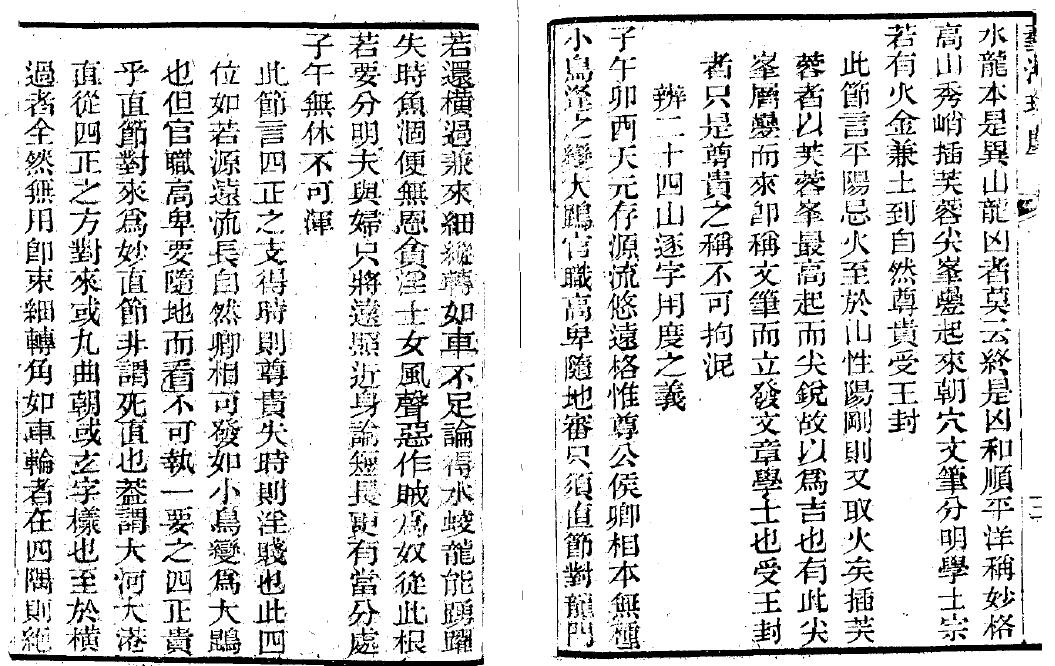 水龍本是異山龍凶者莫云終是凶和順平洋稱妙格
高山秀峭插芙蓉尖峯疊起來朝穴文筆分明學士宗
若有火金兼土到自然尊貴受王封
此節言平陽忌火至於山性陽剛則又取火矣插芙
蓉者以芙蓉峯最高起而尖銳故以爲吉也有此尖
峯層疊而來卽稱文筆而立發文章學士也受王封
者只是尊貴之稱不可拘泥
辨二十四山逐字用度之義
子午卯酉天元存源流悠遠格惟尊公侯卿相本無種
小鳥逢之變大鵾官職高卑隨地審只須直節對龍門
若還橫過兼來細縱轉如車不足論得水蛟龍能踴躍
失時魚涸便無恩貪淫士女風聲惡作賊爲奴從此根
若要分明夫與婦只將遠照近身論短長更有當分處
子午無休不可渾
此節言四正之支得時則尊貴失時則淫賤也此四
位如若源遠流長自然卿相可發如小鳥變爲大鵾
也但官職高卑要隨地而看不可執一要之四正貴
乎直節對來爲妙直節非謂死值也葢謂大河大港
直從四正之方對來或九曲朝或玄字樣也至於橫
過者全然無用卽東細轉角如車輪者在四隅則絶